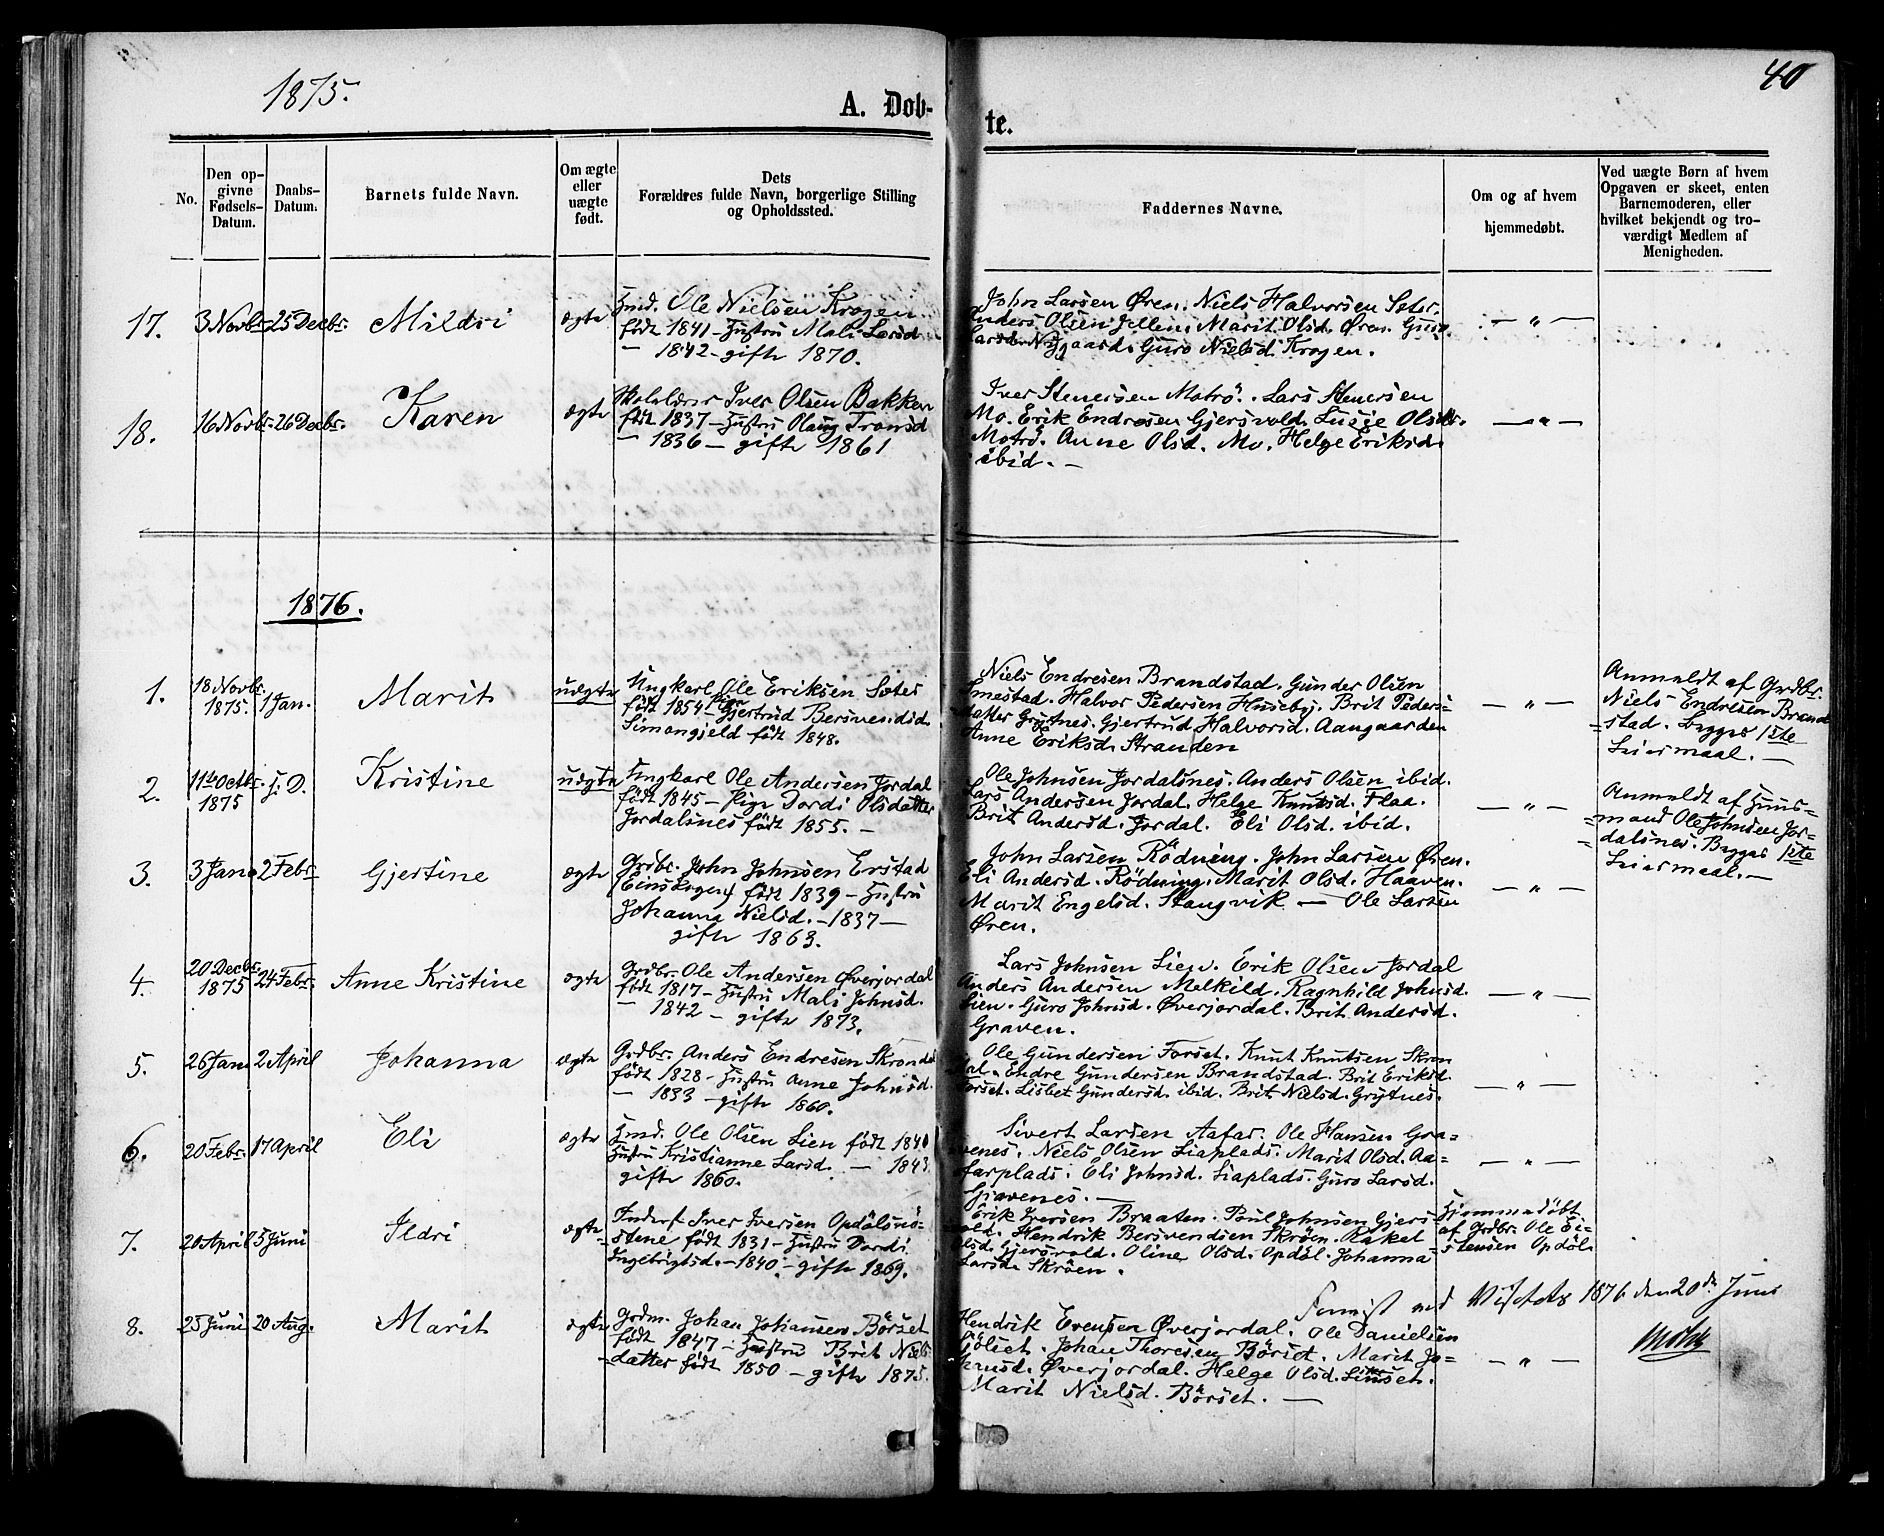 1875.
40
A. Døb-
te.
No.
Den op-
givne
Fødsels-
Datum.
Daabs-
Datum.
Barnets fulde Navn.
Om ægte
eller
uægte
født.
Dets
Forældres fulde Navn, borgerlige Stilling
og Opholdssted.
Faddernes Navne.
Om og af hvem
hjemmedøbt.
Ved uægte Børn af hvem
Opgaven er skeet, enten
Barnemoderen, eller
hvilket bekjendt og tro-
værdigt Medlem af
Menigheden.
17. 3 Novbr. 25 Decbr. Mildri ægte
Hmd. Ole Nielsen Krogen
født 1841 - Hustru Mali Larsd.
— 1842 - gift 1870.
John Larsen Øren. Niels Halvorsen Seter.
Anders Olsen Jellen. Marit Olsd. Øren. Guro
Larsd. Nygaard. Guro Nielsd. Krogen.
— " —
18. 16 Novbr. 26 Decbr. Karen ægte
Skolelærer Iver Olsen Bakken
født 1837 - Hustru Olaug Tronsd
— 1836 — gift 1861
Iver Stenersen Motrö. Lars Stenersen
Mo. Erik Endresen Gjersvold. Lusie Olsdtr.
Motrö. Anne Olsd. Mo. Helge Eriksd.
ibid. —
— " —
1876.
1. 18 Novbr. 1875. 1 Jan. Marit uægte
Ungkarl Ole Eriksen Sæter
født 1854 - Pige Gjertrud Bersvendsd.
Simongjeld født 1848.
Niels Endresen Brandstad. Gunder Olsen
mestad. Halvor Pedersen Huseby. Brit Peders-
datter Grytnes. Gjertrud Halvorsd. Aangaarden
Anne Eriksd. Stranden
— " —
Anmeldt af Grdbr.
Niels Endresen Brand
=stad. Begges 1ste
Leiermaal. —
2. 11te Octbr. 1875 s. D. Kristine uægte
Ungkarl Ole Andersen Jordal
født 1845 - Pige Dordi Olsdatter
Jordalsnes født 1855. —
Ole Johnsen Jordalsnes. Anders Olsen ibid.
Lars Andersen Jordal. Helge Knutsd. Flaa.
Brit Andersd. Jordal. Eli Olsd. ibid.
— " —
Anmeldt af Huus=
mand Ole Johnsen Jor=
dalsnes. Begges 1ste
Leiermaal. —
3. 3 Jan. 2 Febr. Gjertine ægte
Grdbr. John Johnsen Erstad
(Einskogen) født 1839 - Hustru
Johanna Nielsd. - 1837 —
gift 1863.
John Larsen Rödning. John Larsen Øren.
Eli Andersd. Rödning. Marit Olsd. Haaven.
Marit Engelsd. Stangvik — Ole Larsen
Øren.
— " —
4. 20 Decbr. 1875 24 Febr. Anne Kristine ægte
Grdbr. Ole Andersen Øverjordal
født 1817 - Hustru Mali Johnsd.
— 1842 — gift 1873.
Lars Johnsen Lien. Erik Olsen Jordal
Anders Andersen Melkild. Ragnhild Johnsd.
Lien. Guro Johnsd. Øverjordal. Brit Andersd.
Graven.
— " —
5. 26 Jan. 2 April Johanna ægte
Grdbr. Anders Endresen Skrondal
født 1828 - Hustru Anne Johnsd.
— 1833 — gift 1860.
Ole Gundersen Forset. Knut Knutsen Skron
dal. Endre Gundersen Brandstad. Brit Eriksd.
Forset. Lisbet Gundersd. ibid. Brit Nielsd. Grytnes.
— " —
6. 20 Febr. 17 April Eli ægte
Hmd. Ole Olsen Lien født 1840
Hustru Kristianne Larsd. — 1843.
gift 1860.
Sivert Larsen Aafar. Ole Hansen Gra=
venes. Niels Olsen Liaplads. Marit Olsd. Aa=
farplads. Eli Johnsd. Liaplads. Guro Larsd.
Gravenes. —
— " —
7. 20 April 5 Juni Ildri ægte
Inderst Iver Iversen Opdölsnö-
stene født 1831 - Hustru Dordi
Ingebrigtsd. - 1840 - gift 1869.
Erik Iversen Braaten. Poul Johnsen Gjers
vold. Hendrik Bersvendsen Skröen. Rakel
Olsd. Gjersvold. Oline Olsd. Opdöl. Johanna
Larsd. Skröen.
Hjemmedöbt
af Grdbr. Ole Ei-
stensen Opdöl.
Visitats 1876 den 20de Juni
8. 25 Juni 20 Aug. Marit ægte
Grdm. Johan Johansen Börset
født 1847 - Hustru Brit Niels
datter født 1850 — gift 1875.
Hendrik Evensen Øverjordal. Ole Danielsen
Sölset. Johan Thoresen Börset. Marit Jo=
hnsd. Øverjordal. Helge Olsd.
Marit Nielsd. Börset. —
— " —